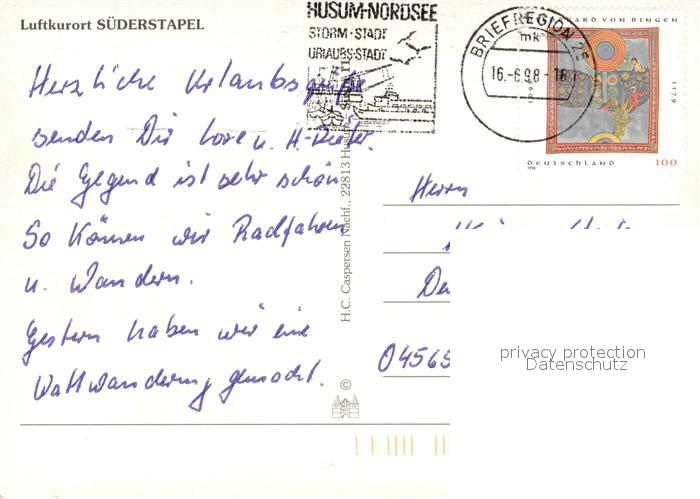 Luftkurort SÜDERSTAPEL
Herzliche Urlaubsgrüße
senden Dir Lore u. H-Dieter.
Die Gegend ist sehr schön
So können wir Radfahren
u. Wandern.
Gestern haben wir eine
Wattwanderung gemacht.
H.C. Caspersen Nachf., 22813 Husum
©
HUSUM-NORDSEE
STORM-STADT
URLAUBS-STADT
BRIEFREGION 25
mk
16.-6.98-18
HILDEGARD VON BINGEN
1179
DEUTSCHLAND
100
1998
Herrn
04565
privacy protection
Datenschutz